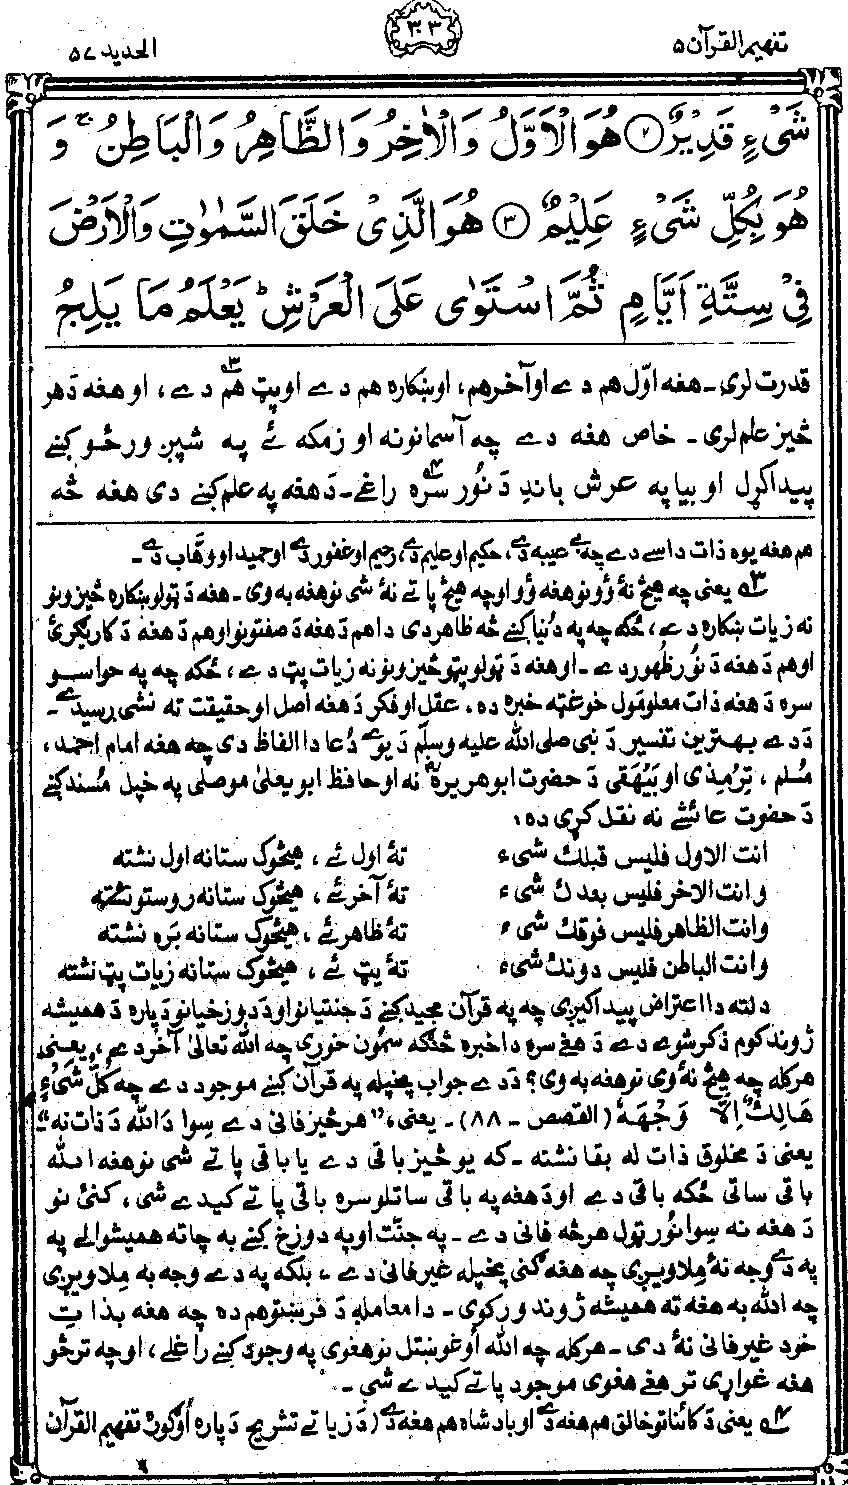 تفهیم القرآن ۵
۳۰۳
الحدید ۵۷
شَیْءٍ قَدِیْرٌ ۝۲ هُوَ الْاَوَّلُ وَالْاٰخِرُ وَالظَّاهِرُ وَالْبَاطِنُ ۚ وَ
هُوَ بِکُلِّ شَیْءٍ عَلِیْمٌ ۝۳ هُوَ الَّذِیْ خَلَقَ السَّمٰوٰتِ وَالْاَرْضَ
فِیْ سِتَّةِ اَیَّامٍ ثُمَّ اسْتَوٰی عَلَی الْعَرْشِ ؕ یَعْلَمُ مَا یَلِجُ
قدرت لری۔ هغه اوّل هم دے او آخر هم، او ښکاره هم دے او پټ هم ۳ دے، او هغه دَ هر
څیز علم لری۔ خاص هغه دے چه آسمانونه او زمکه ئے په شپږ ورځو کښے
پیدا کړل او بیا په عرش باندِ دَ نُور سره ۴ راغے۔ دَ هغه په علم کښے دی هغه څه
هم هغه یوه ذات داسے دے چه بے عیبه دے، حکیم او علیم دے، رحیم او غفور دے او حمید او وهّاب دے۔
۳ یعنی چه هیڅ نۀ ؤو نو هغه ؤو او چه هیڅ پاتے نۀ شی نو هغه به وی۔ هغه دَ ټولو ښکاره څیزونو
نه زیات ښکاره دے، ځکه چه په دُنیا کښے څه ظاهر دی دا هم دَ هغه دَ صفتونو او هم دَ هغه دَ کاریګرئ
او هم دَ هغه دَ نُور ظُهور دے۔ او هغه دَ ټولو پټو څیزونو نه زیات پټ دے، ځکه چه په حواسو
سره دَ هغه ذات معلومول خو غټه خبره ده، عقل او فکر دَ هغه اصل او حقیقت ته نشی رسیدے۔
دَ دے بهترین تفسیر دَ نبی صلی الله علیه وسلّم دَ یوے دُعا دا الفاظ دی چه هغه امام احمد،
مُسلم، تِرمذی او بَیْهَقی دَ حضرت ابوهریرہ نه او حافظ ابو یعلیٰ موصلی په خپل مُسند کښے
دَ حضرت عائشے نه نقل کړی ده:
انت الاول فلیس قبلك شیء تۀ اول ئے، هیڅوک ستا نه اول نشته
وانت الاخر فلیس بعدك شیء تۀ آخر ئے، هیڅوک ستا نه روستو نشته
وانت الظاهر فلیس فوقك شیء تۀ ظاهر ئے، هیڅوک ستا نه بَره نشته
وانت الباطن فلیس دونك شیء تۀ پټ ئے، هیڅوک ستا نه زیات پټ نشته
دلته دا اعتراض پیدا کیږی چه په قرآن مجید کښے دَ جنتیانو او دَ دوزخیانو دَ پاره دَ همیشه
ژوند کوم ذکر شوے دے دَ هغے سره دا خبره څنګه سمُون خوری چه الله تعالیٰ آخر دے، یعنی
هر کله چه هیڅ نۀ وی نو هغه به وی؟ دَ دے جواب پخپله په قرآن کښے موجود دے چه کُلُّ شَیْءٍ
هَالِكٌ اِلَّا وَجْهَهٗ (القصص - ۸۸)۔ یعنی، "هر څیز فانی دے سِوا دَ الله دَ ذات نه"۔
یعنی دَ مخلوق ذات له بقا نشته۔ که یو څیز باقی دے یا باقی پاتے شی نو هغه الله
باقی ساتی ځکه باقی دے او دَ هغه په باقی ساتلو سره باقی پاتے کیدے شی، کنئ نو
دَ هغه نه سِوا نُور ټول هر څه فانی دے۔ په جنّت او په دوزخ کښے به چا ته همیشوالے په
په دے وجه نۀ مِلاویږی چه هغه ګنی پخپله غیر فانی دے، بلکه په دے وجه به مِلاویږی
چه الله به هغه ته همیشه ژوند ورکوی۔ دا معامله دَ فرښتو هم ده چه هغه بذاتِ
خود غیر فانی نۀ دی۔ هر کله چه الله اُوغوښتل نو هغوی په وجود کښے راغلے، او چه تر څو
هغه غواړی تر هغے هغوی موجود پاتے کیدے شی۔
۴ یعنی دَ کائناتو خالق هم هغه دے او بادشاه هم هغه دے (دَ زیاتے تشریح دَ پاره اُوګورئ تفهیم القرآن